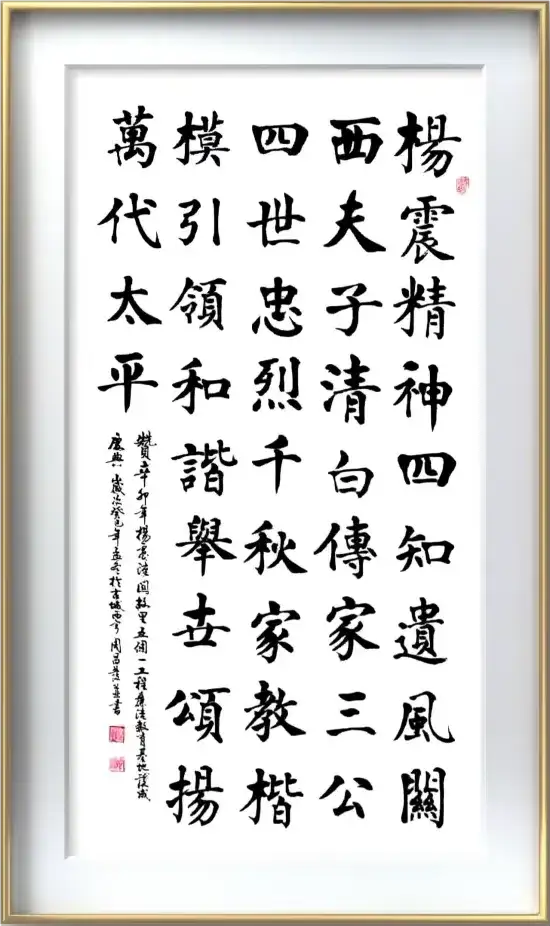 楊震精神四知遺風關
西夫子清白傳家三公
四世忠烈千秋家教楷
模引領和諧舉世頌揚
萬代太平
贊辛卯年楊震陵園故里五個一工程廉潔教育基地落成
慶典歲次癸巳年孟冬於古城西安周昌岐並書